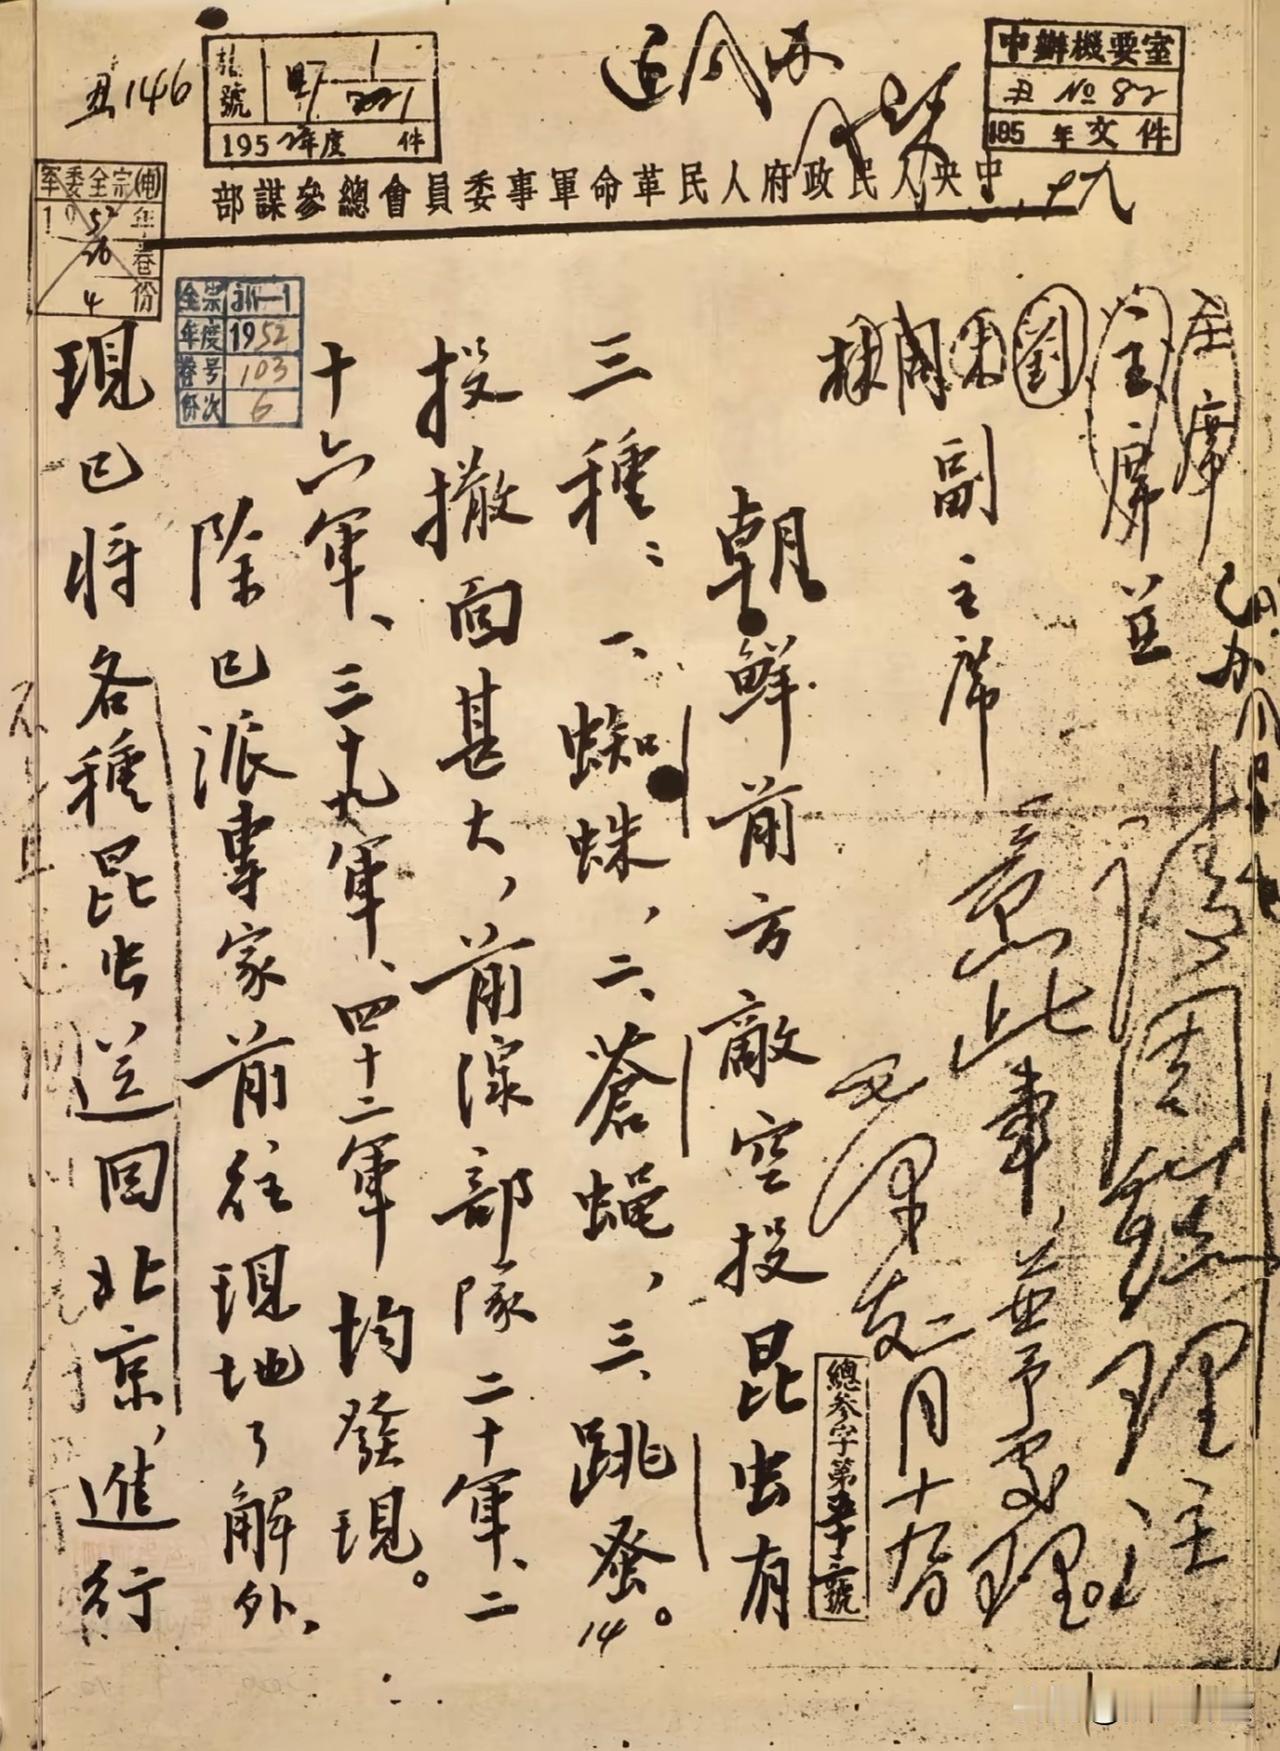 丑146
號
1952年度 件
中辦機要室
丑 No 82
195 年文件
中央人民政府人民革命軍事委員會總參謀部
十九
軍委全宗
年
卷
份
4
全宗
年度 1952
卷号 103
份次 6
主席
主席並
劉朱周林副主席
請周總理注
意此事,並予處理。
毛澤東 二月十九日
總參字第 號
朝鮮前方敵空投昆虫有
三種:一、蜘蛛,二、蒼蝇,三、跳蚤。
14
投撒面甚大,前線部隊二十軍、二
十六軍、三十九軍、四十二軍均發現。
除已派專家前往現地了解外,
現已將各種昆虫送回北京,進行